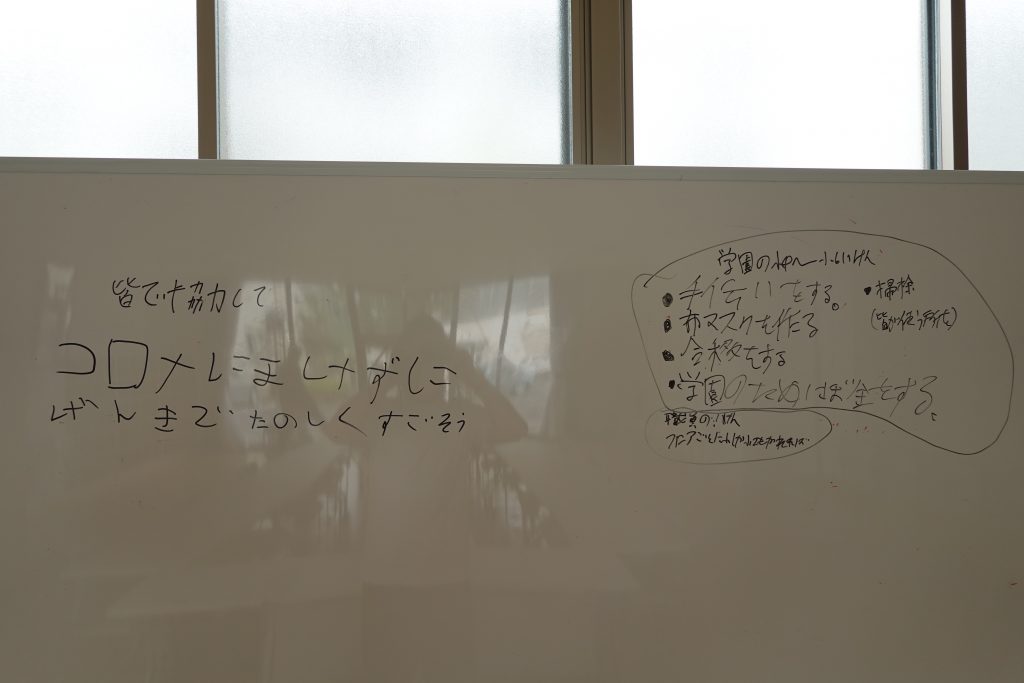 皆で協力して
コロナにまけずに
げんきでたのしくすごそう
学園の
・手伝いをする。
・布マスクを作る
・合奏をする
・学園のためにぼ金をする。
・掃除
(皆が使う所を)
職員の
フロアごと